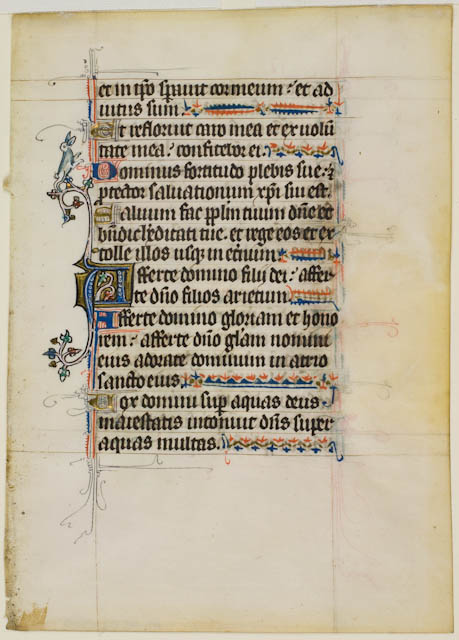 et in ip̅o sperauit cor meum : et ad
iutus sum.
Et refloruit caro mea et ex uolu̅
tate mea : confitebor ei.
Dominus fortitudo plebis sue : ⁊
p̅tector saluationum xp̅i sui est.
Saluum fac pp̅lm tuum dn̅e et
bn̅dic h̅editati tue . et rege eos et ex
tolle illos usq; in et̅num.
Afferte domino filij dei : affer
te dn̅o filios arietum.
Afferte domino gloriam et hono
rem : afferte dn̅o gl̅am nomini
eius adorate dominum in atrio
sancto eius.
Vox domini sup̅ aquas deus
maiestatis intonuit dn̅s super
aquas multas.